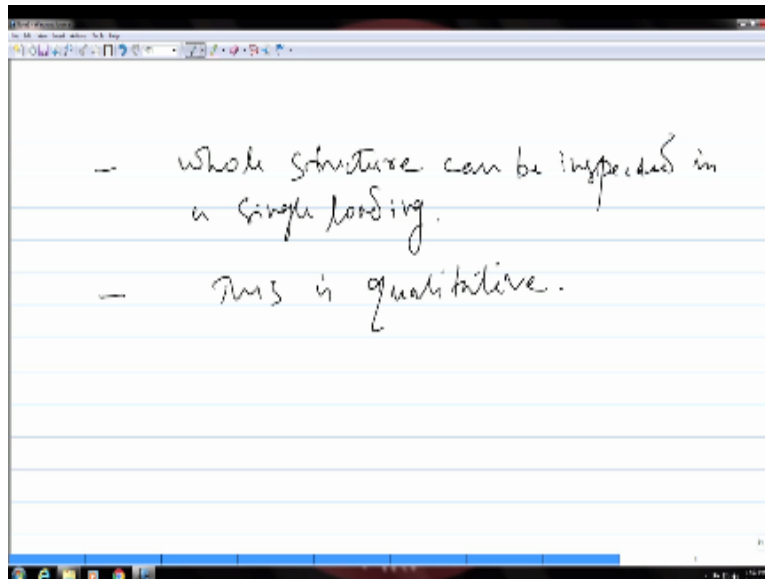 - whole structure can be inspected in
a single loading.
- This is qualitative.